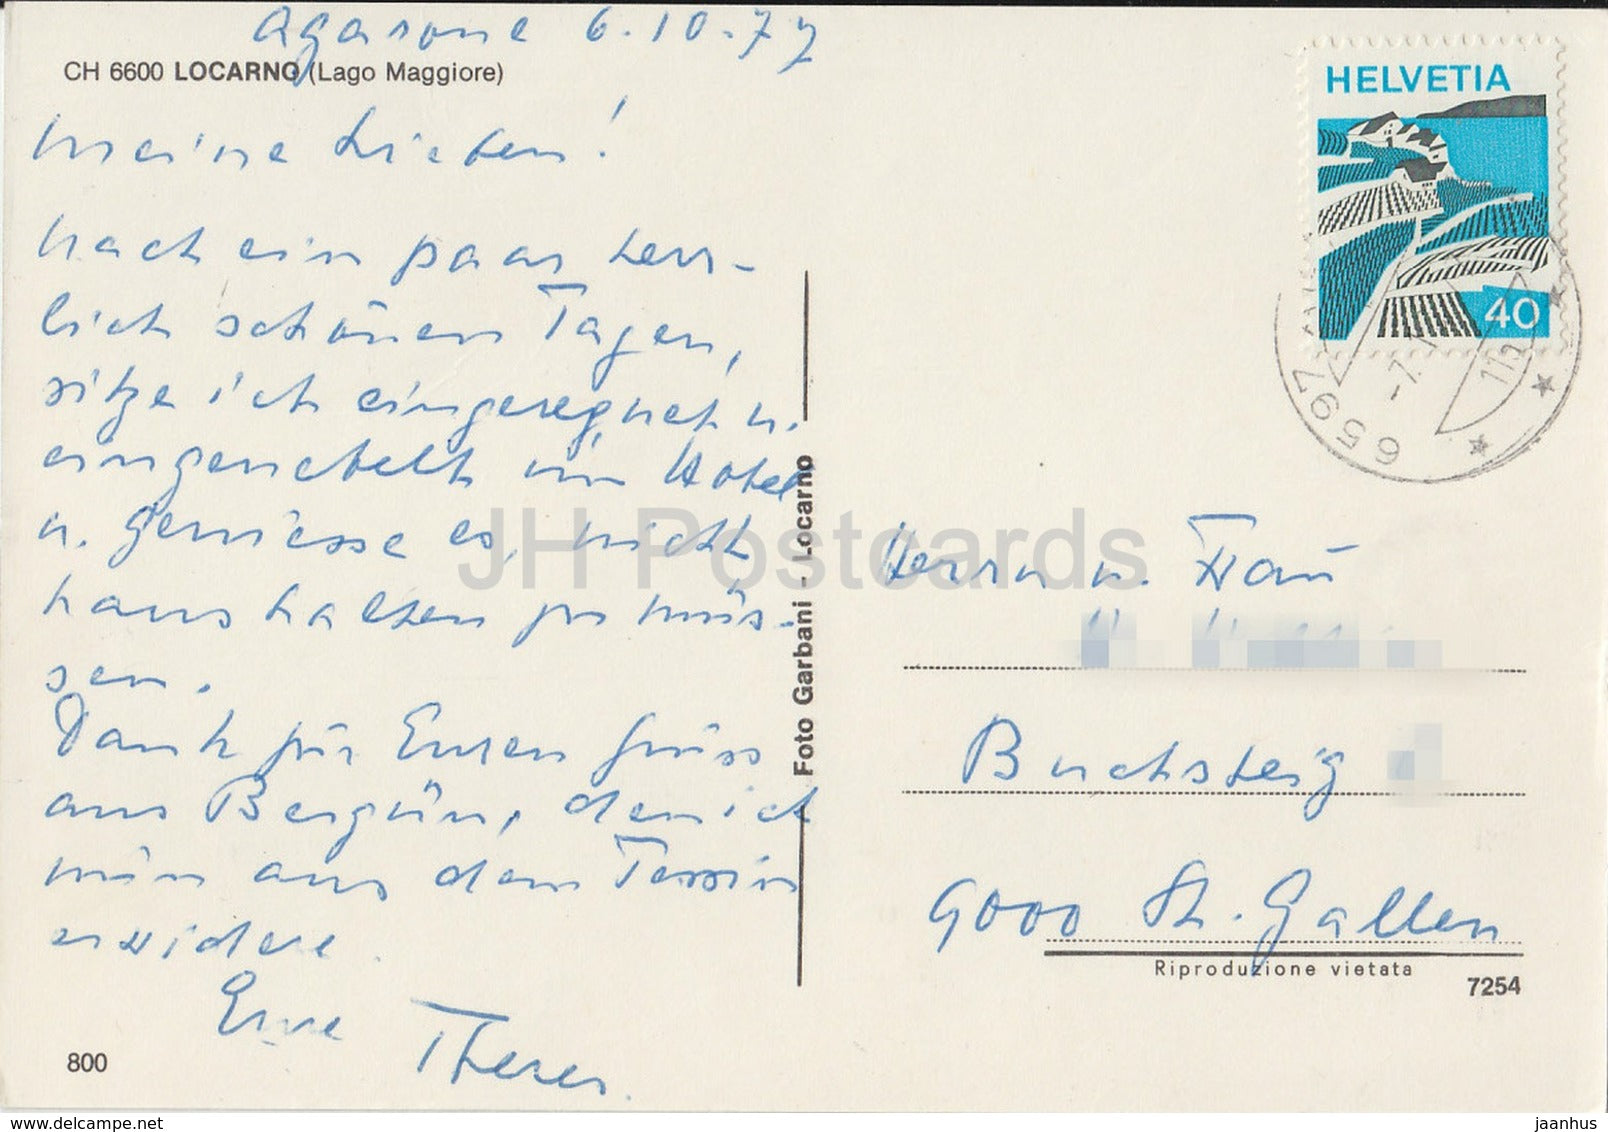 Agarone 6.10.77
CH 6600 LOCARNO (Lago Maggiore)
Meine Lieben!
Nach ein paar herr-
lich schönen Tagen,
sitze ich eingeregnet u.
eingenebelt im Hotel
u. geniesse es, nicht
haushalten zu müs-
sen.
Dank für Euren Gruss
aus Bergün, den ich
nun aus dem Tessin
erwidere.
Eure Theres.
800
Foto Garbani - Locarno
HELVETIA
40
6597
Herrn u. Frau
Buchsteig
9000 St. Gallen
Riproduzione vietata
7254
JH Postcards
www.delcampe.net
jaanhus